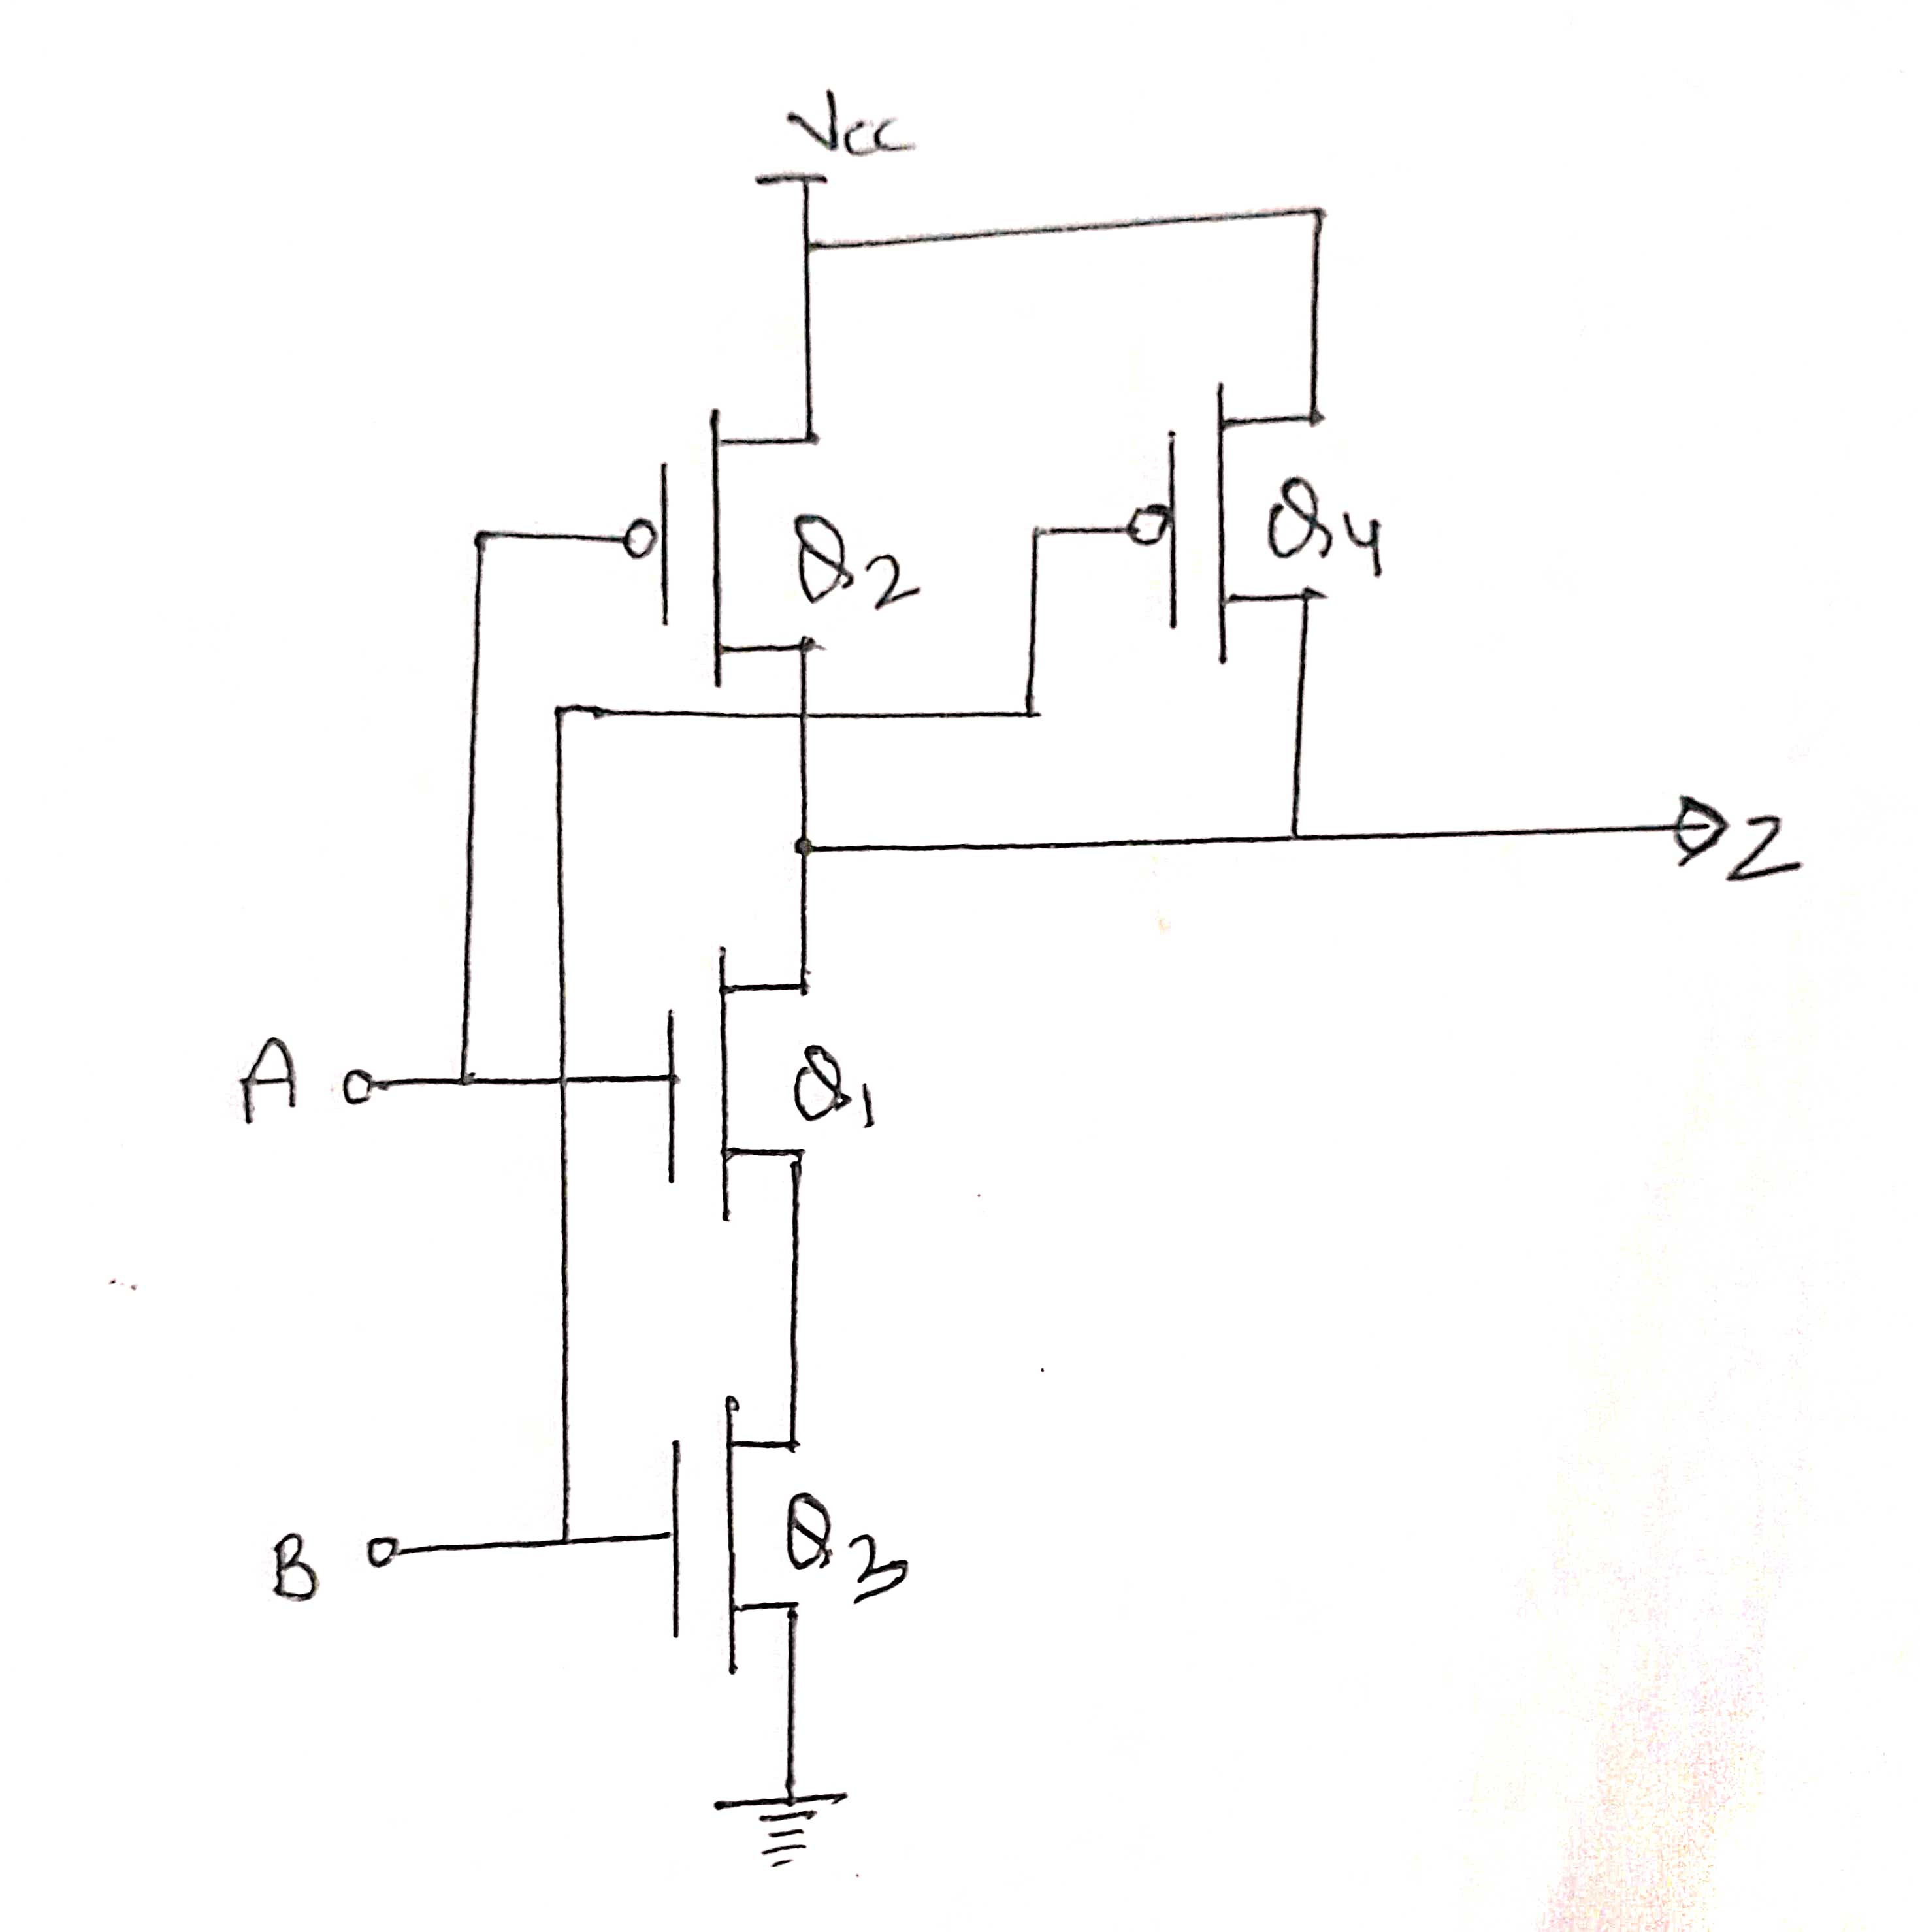 Vcc
Q2
Q4
Z
A
Q1
B
Q3